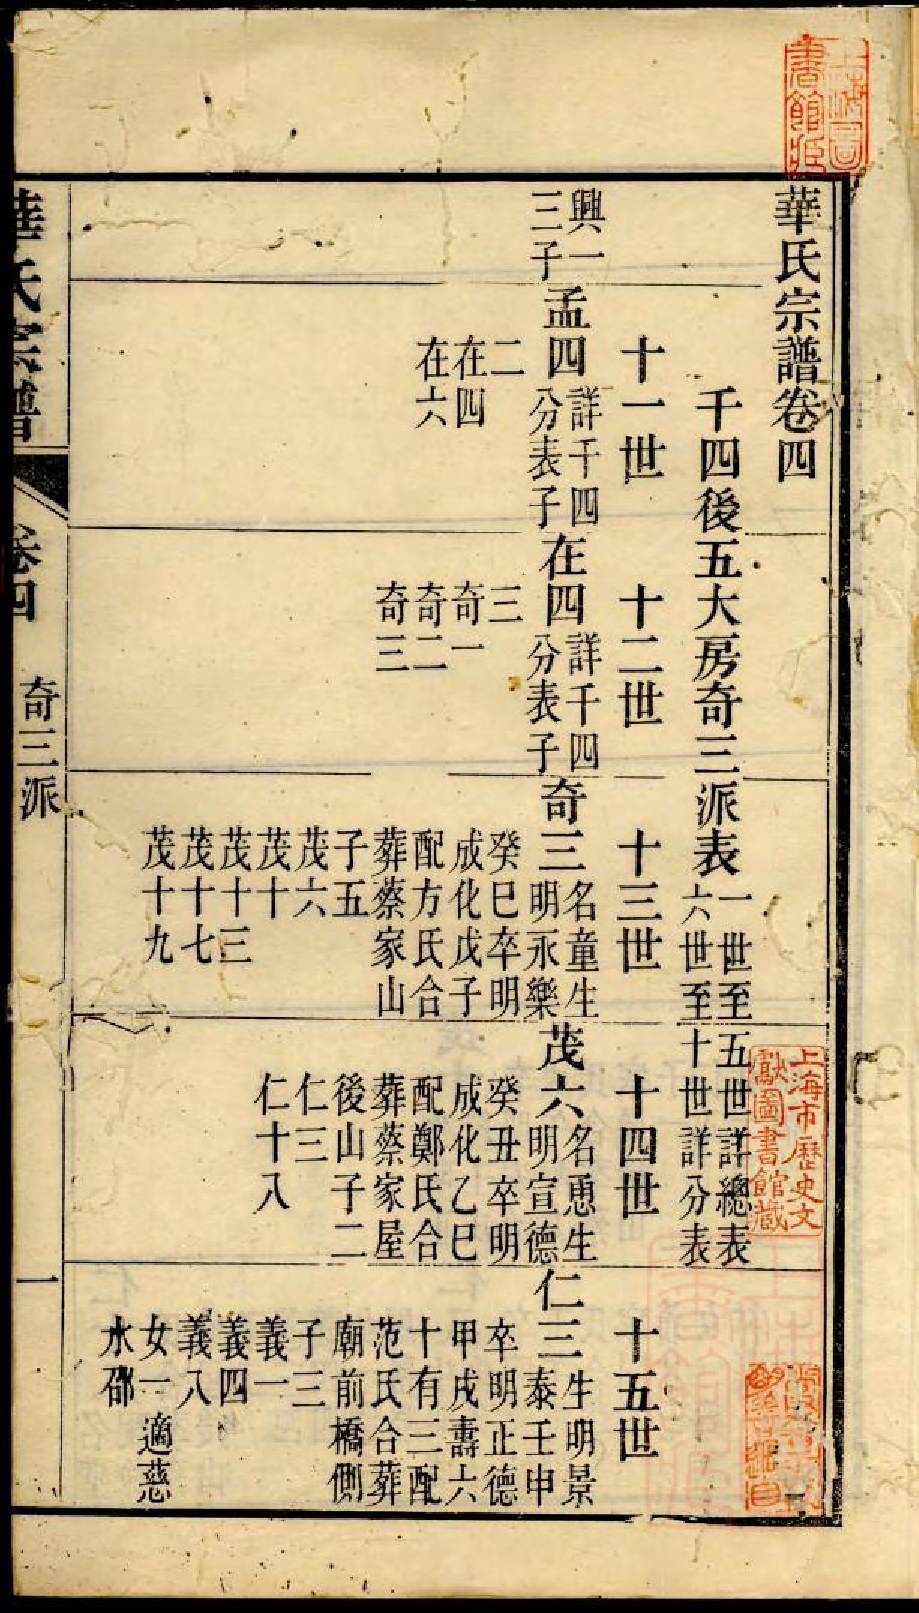 華氏宗譜卷四
千四後五大房奇三派表
一世至五世詳總表
六世至十世詳分表
十一世
十二世
十三世
十四世
十五世
興一
三子
孟四
詳千四
分表子
二
在四
在六
在四
詳千四
分表子
三
奇一
奇二
奇三
奇三
名童生
明永樂
癸巳卒明
成化戊子
配方氏合
葬蔡家山
子五
茂六
茂十
茂十三
茂十七
茂十九
茂六
名恿生
明宣德
癸丑卒明
成化乙巳
配鄭氏合
葬蔡家屋
後山子二
仁三
仁十八
仁三
生明景
泰壬申
卒明正德
甲戌壽六
十有三配
范氏合葬
廟前橋側
子三
義一
義四
義八
女一適慈
水邵
華氏宗譜
卷四
奇三派
一
上海市歷史文
獻圖書館藏
上海圖
書館藏